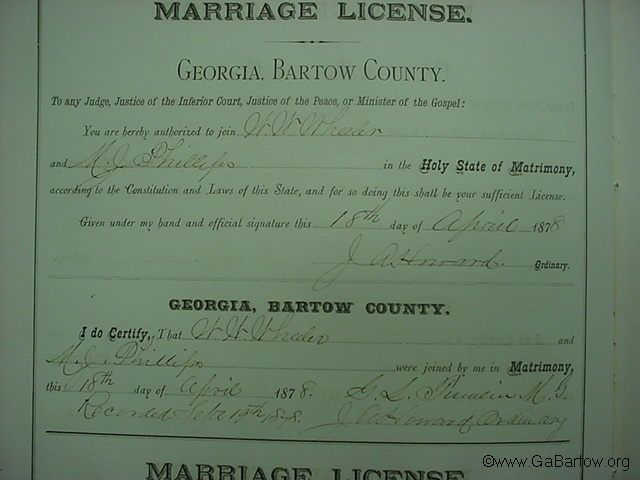 MARRIAGE LICENSE.
GEORGIA, BARTOW COUNTY.
To any Judge, Justice of the Inferior Court, Justice of the Peace, or Minister of the Gospel:
You are hereby authorized to join W. W. Wheeler
and M. J. Phillips in the Holy State of Matrimony,
according to the Constitution and Laws of this State, and for so doing this shall be your sufficient License.
Given under my hand and official signature this 18th day of April 1878
J A Howard Ordinary.
GEORGIA, BARTOW COUNTY.
I do Certify, That W. W. Wheeler and
M. J. Phillips were joined by me in Matrimony,
this 18th day of April 1878. G. L. M. G.
Recorded Sept 1878. J A Howard Ordinary
MARRIAGE LICENSE.
©www.GaBartow.org